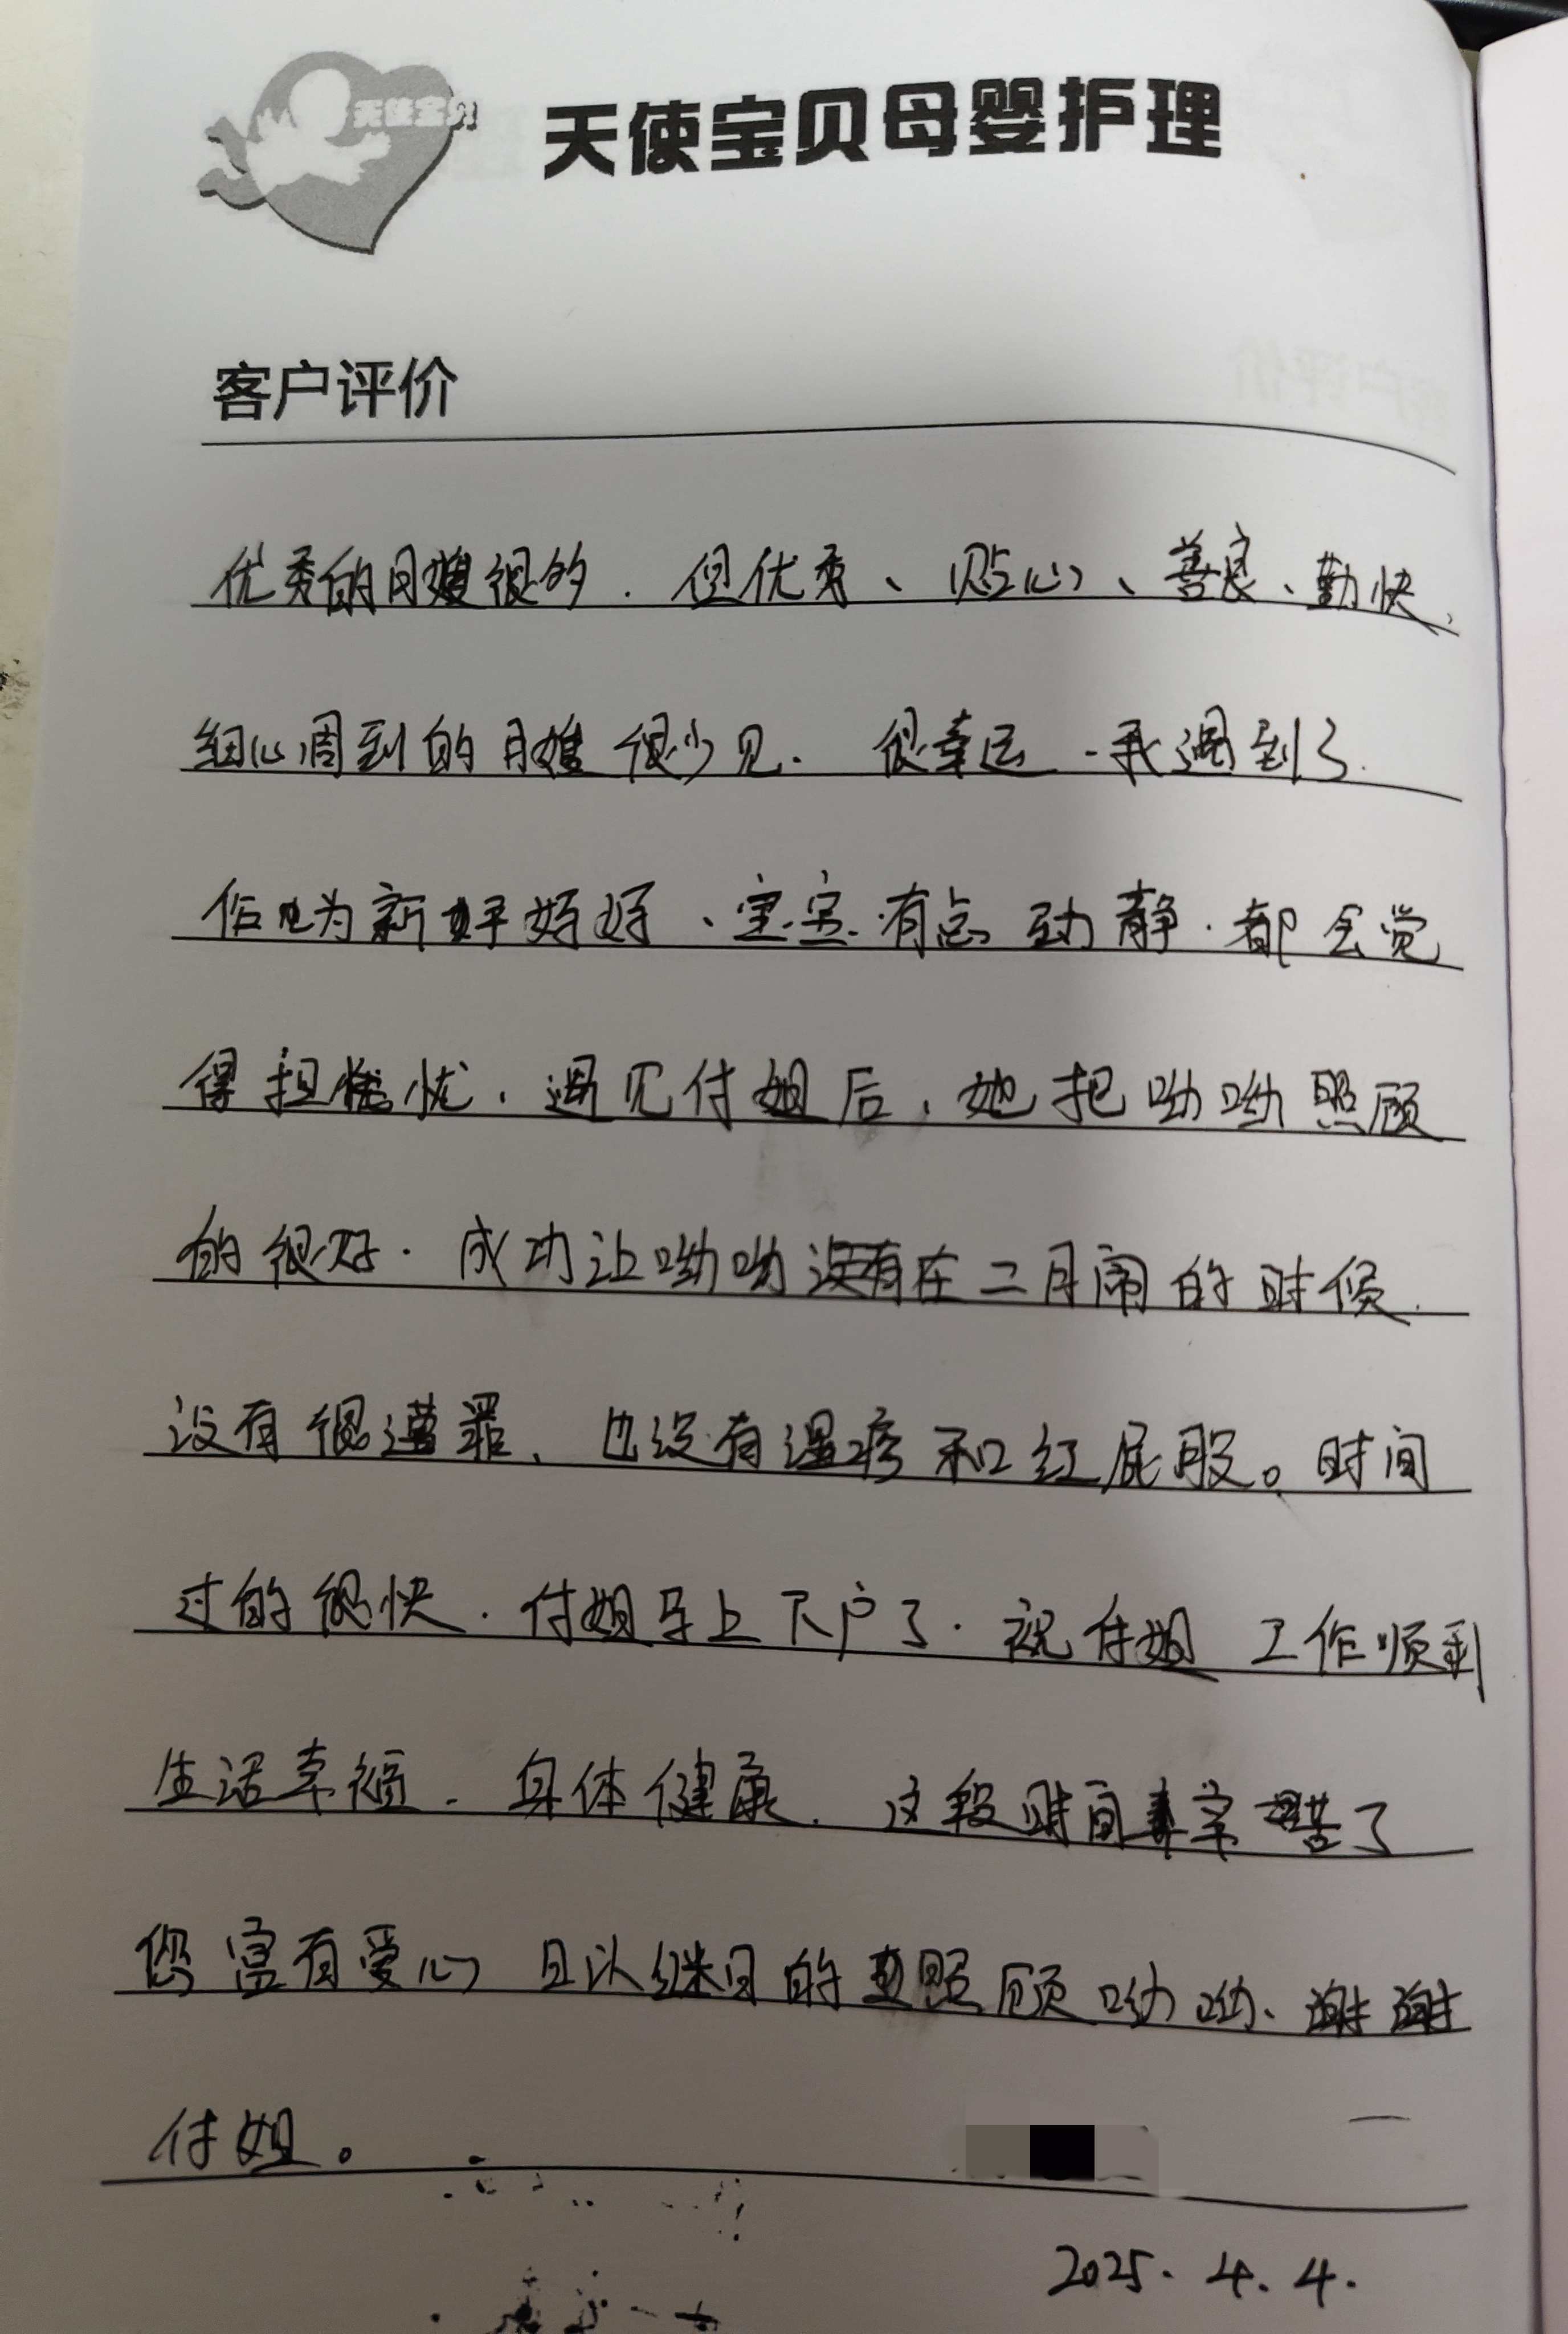 天使宝贝
天使宝贝母婴护理
客户评价
优秀的月嫂很多.但优秀、贴心、善良、勤快、
细心周到的月嫂很少见.很幸运.我遇到了.
作为新手妈妈、宝宝.有点动静.都会觉
得担忧.遇见付姐后,她把呦呦照顾
的很好.成功让呦呦没有在二月闹的时候.
没有很遭罪、也没有湿疹和红屁股。时间
过的很快.付姐马上下户了.祝付姐工作顺利
生活幸福.身体健康.这段时间辛苦了
您富有爱心日以继日的照顾呦呦、谢谢
付姐。
2025.4.4.